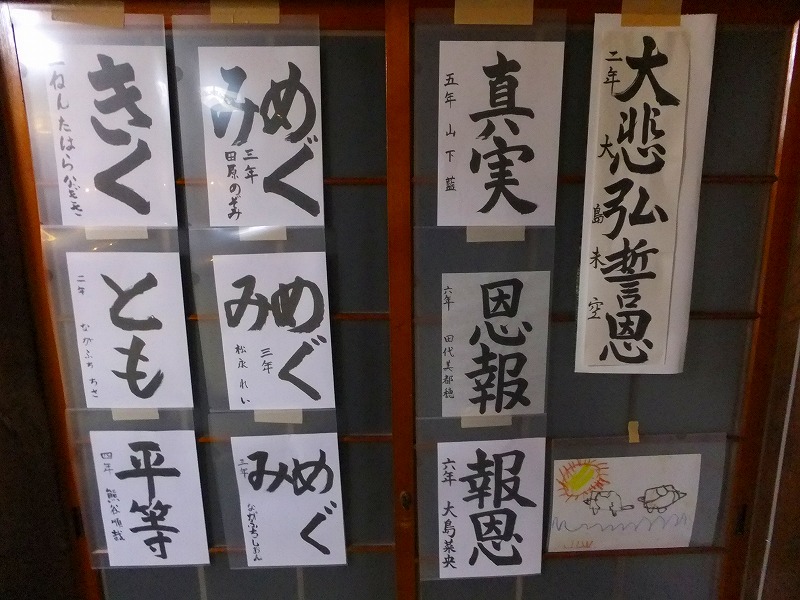 大悲弘誓恩
二年 大島未空
真実
五年 山下藍
恩報
六年 田代美都穂
報恩
六年 大島菜央
めぐみ
三年 田原のぞみ
めぐみ
三年 松永れい
めぐみ
三年 ながふちしおん
きく
一ねんたはらかずき
とも
二年 ながふちちさ
平等
四年 熊谷順哉